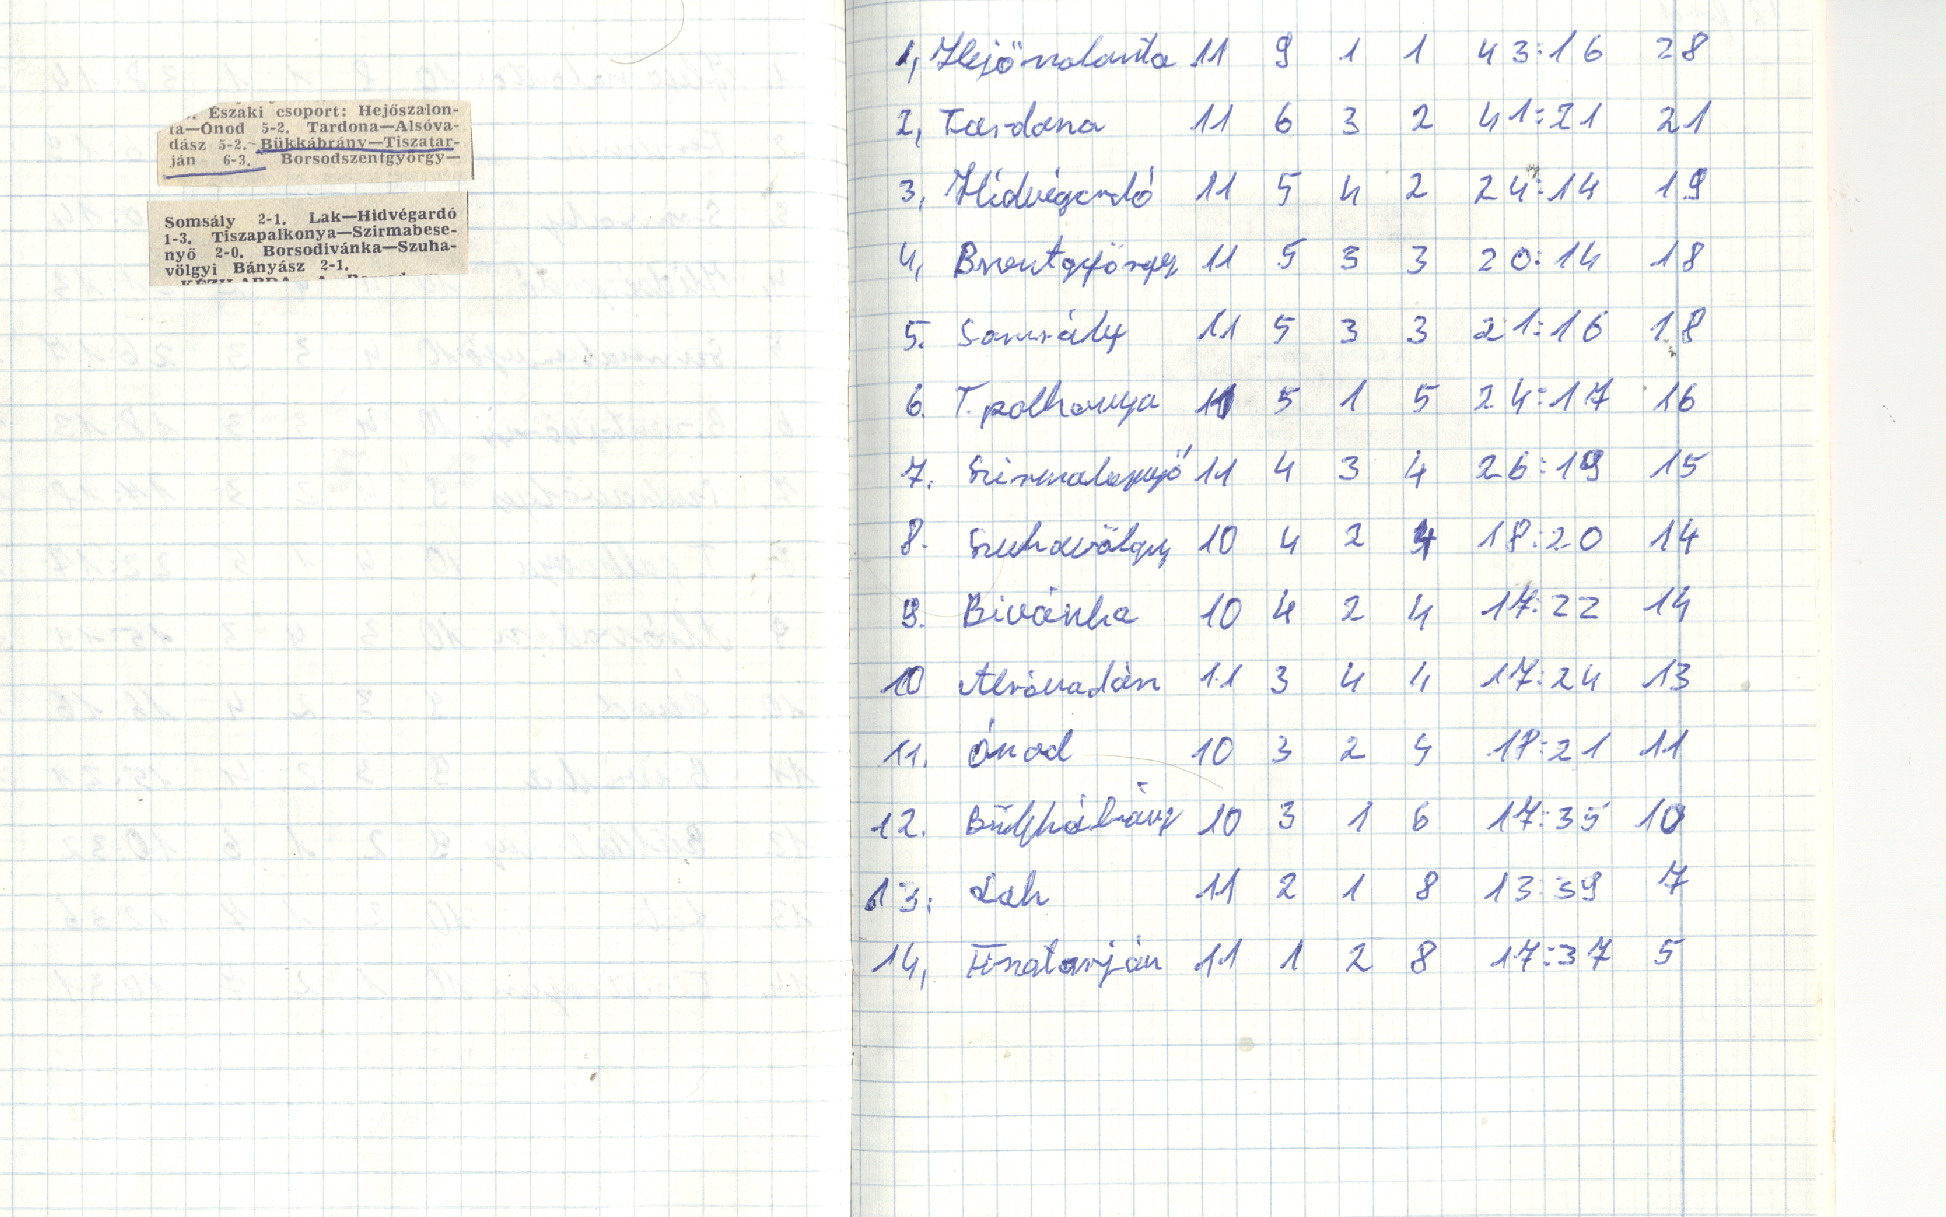 Északi csoport: Hejőszalon-
ta—Ónod 5-2. Tardona—Alsóva-
dász 5-2. Bükkábrány—Tiszatar-
ján 6-3. Borsodszentgyörgy—
Somsály 2-1. Lak—Hidvégardó
1-3. Tiszapalkonya—Szirmabese-
nyő 2-0. Borsodivánka—Szuha-
völgyi Bányász 2-1.
1, Hejőszalonta 11 9 1 1 43:16 28
2, Tardona 11 6 3 2 41:21 21
3, Hídvégardó 11 5 4 2 24:14 19
4, Bszentgyörgy 11 5 3 3 20:14 18
5. Somsály 11 5 3 3 21:16 18
6. T.palkonya 11 5 1 5 24:17 16
7. 11 4 3 4 26:19 15
8. Szuhavölgy 10 4 2 4 18:20 14
9. Bivánka 10 4 2 4 17:22 14
10 Alsóvadász 11 3 4 4 17:24 13
11. Ónod 10 3 2 5 18:21 11
12. Bükkábrány 10 3 1 6 17:35 10
13. Lak 11 2 1 8 13:39 7
14, Tiszatarján 11 1 2 8 17:37 5